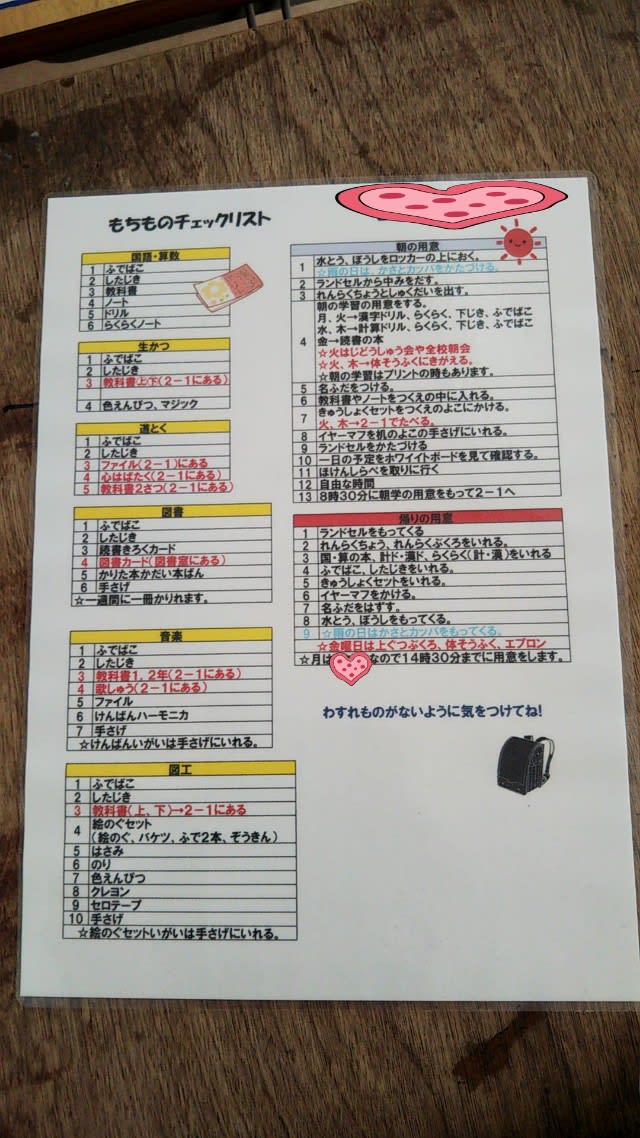 もちものチェックリスト
国語・算数
1 ふでばこ
2 したじき
3 教科書
4 ノート
5 ドリル
6 らくらくノート
生かつ
1 ふでばこ
2 したじき
3 教科書(上)(下)(2-1にある)
4 色えんぴつ、マジック
道とく
1 ふでばこ
2 したじき
3 ファイル(2-1)にある
4 心はばたく(2-1にある)
5 教科書2さつ(2-1にある)
図書
1 ふでばこ
2 したじき
3 読書きろくカード
4 図書カード(図書室にある)
5 かりた本かだい本ばん
6 手さげ
☆一週間に一冊かりれます。
音楽
1 ふでばこ
2 したじき
3 教科書1，2年(2-1にある)
4 歌しゅう(2-1にある)
5 ファイル
6 けんばんハーモニカ
7 手さげ
☆けんばんいがいは手さげにいれる。
図工
1 ふでばこ
2 したじき
3 教科書(上、下)→2-1にある
4 絵のぐセット
(絵のぐ、バケツ、ふで2本、ぞうきん)
5 はさみ
6 のり
7 色えんぴつ
8 クレヨン
9 セロテープ
10 手さげ
☆絵のぐセットいがいは手さげにいれる。
朝の用意
1 水とう、ぼうしをロッカーの上におく。
☆雨の日は、かさとカッパをかたづける。
2 ランドセルから中みをだす。
3 れんらくちょうとしゅくだいを出す。
4 朝の学習の用意をする。
月、火→漢字ドリル、らくらく、下じき、ふでばこ
水、木→計算ドリル、らくらく、下じき、ふでばこ
金→読書の本
☆火はじどうしゅう会や全校朝会
☆火、木→体そうふくにきがえる。
☆朝の学習はプリントの時もあります。
5 名ふだをつける。
6 教科書やノートをつくえの中に入れる。
7 きゅうしょくセットをつくえのよこにかける。
火、木→2-1でたべる。
8 イヤーマフを机のよこの手さげにいれる。
9 ランドセルをかたづける
10 一日の予定をホワイトボードを見て確認する。
11 ほけんしらべを取りに行く
12 自由な時間
13 8時30分に朝学の用意をもって2-1へ
帰りの用意
1 ランドセルをもってくる
2 れんらくちょう、れんらくぶくろをいれる。
3 国・算の本、計ド・漢ド、らくらく(計・漢)をいれる
4 ふでばこ、したじきをいれる。
5 きゅうしょくセットをいれる。
6 イヤーマフをかける。
7 名ふだをはずす。
8 水とう、ぼうしをもってくる。
9 ☆雨の日はかさとカッパをもってくる。
☆金曜日は上ぐつぶくろ、体そうふく、エプロン
☆月は なので14時30分までに用意をします。
わすれものがないように気をつけてね!